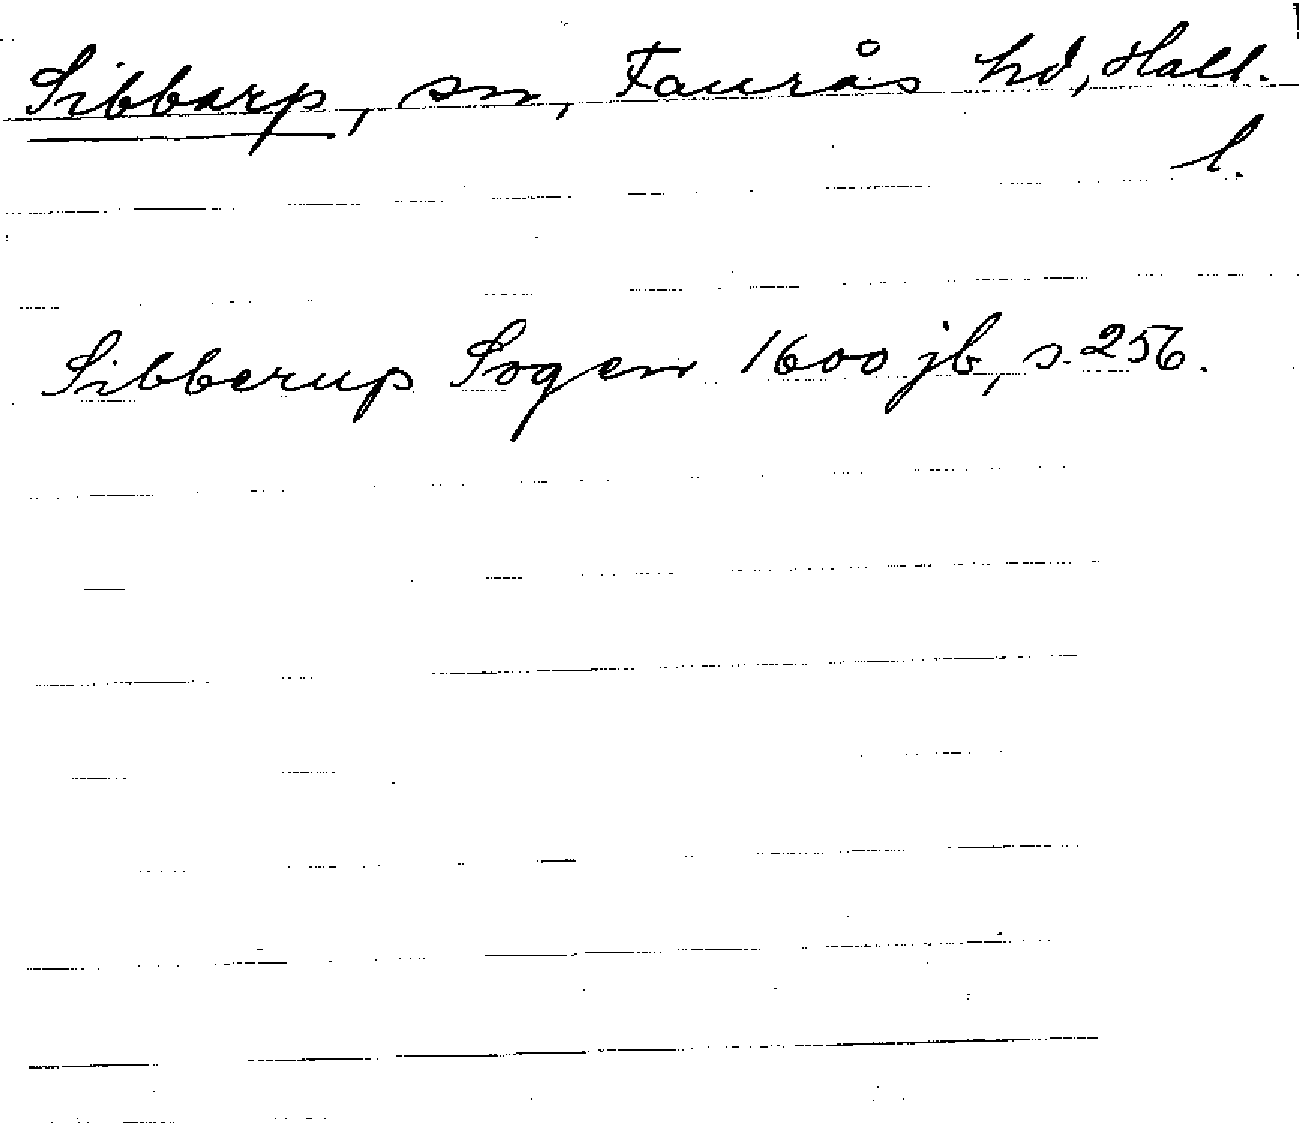 Sibbarp, sn, Faurås hd, Hall.
l.
Sibberup Sogen 1600 jb, s. 256.